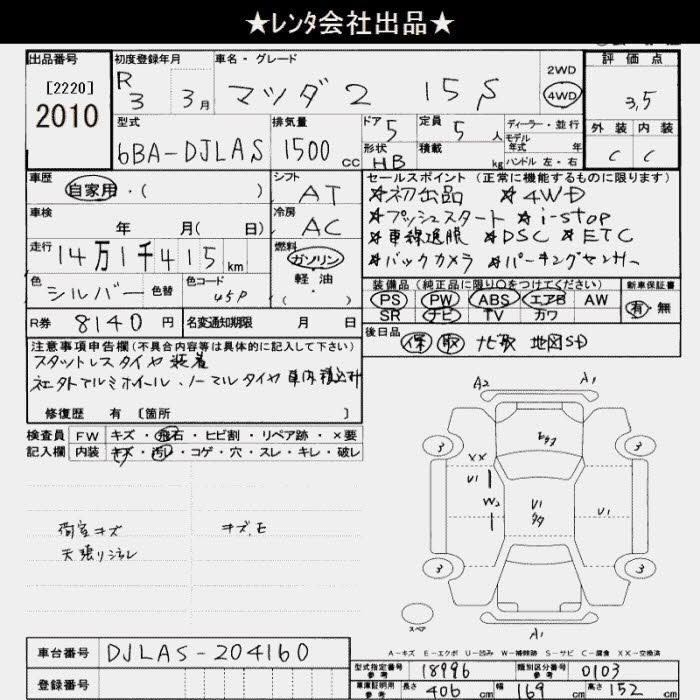 ★レンタ会社出品★
出品番号
[2220]
2010
初度登録年月
R3 3月
車名・グレード
マツダ2 15S
2WD
4WD
評価点
3,5
外装 内装
C C
型式
6BA-DJLAS
排気量
1500 cc
ドア 5
定員 5 人
ディーラー・並行
モデル
年式 年
形状 HB
積載 kg
ハンドル 左・右
車歴
自家用・( )
シフト
AT
車検
年 月( 日)
冷房
AC
走行
14万1千415km
燃料
ガソリン
軽油
( )
色
シルバー 色替
色コード
45P
R券 8140円
名変通知期限 月 日
セールスポイント (正常に機能するものに限ります)
★初出品 ★4WD
★プッシュスタート ★i-stop
★車線逸脱 ★DSC ★ETC
★バックカメラ ★パーキングセンサー
装備品 (純正品に限り○をつけてください)
PS PW ABS エアB AW
SR ナビ TV カワ
新車保証書
有・無
後日品
保 取 地図SD
注意事項申告欄(不具合内容等は具体的に記入して下さい)
スタットレスタイヤ装着
社外アルミホイール・ノーマルタイヤ車内積込済
修復歴 有 [箇所 ]
検査員
記入欄
FW キズ・飛石・ヒビ割・リペア跡・×要
内装 キズ・汚レ・コゲ・穴・スレ・キレ・破レ
荷室キズ
天張リシミ
キズ.E
A2 A1
3 3
XX
U1
W2
U1
U1
3 3
スペア
A1
A-キズ E-エクボ U-凹み W-補修跡 S-サビ C-腐食 XX-交換済
車台番号 DJLAS-204160
登録番号
型式指定番号
参考
18996
類別区分番号
参考
0103
車庫証明用
参考
長さ 406 cm 幅 169 cm 高さ 152 cm